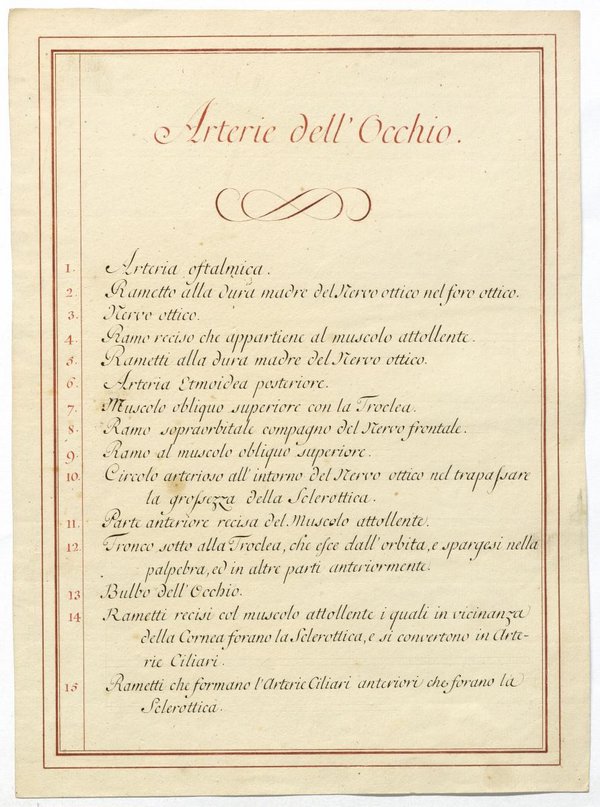 Arterie dell'Occhio.
1. Arteria oftalmica.
2. Rametto alla dura madre del Nervo ottico nel foro ottico.
3. Nervo ottico.
4. Ramo reciso che appartiene al muscolo attollente.
5. Rametti alla dura madre del Nervo ottico.
6. Arteria Etmoidea posteriore.
7. Muscolo obliquo superiore con la Troclea.
8. Ramo sopraorbitale compagno del Nervo frontale.
9. Ramo al muscolo obliquo superiore.
10. Circolo arterioso all'intorno del Nervo ottico nel trapaſsare
la groſsezza della Sclerottica.
11. Parte anteriore recisa del Muscolo attollente.
12. Tronco sotto alla Troclea, che eſce dall'orbita, e spargesi nella
palpebra, ed in altre parti anteriormente.
13 Bulbo dell'Occhio.
14 Rametti recisi col muscolo attollente i quali in vicinanza
della Cornea forano la Sclerottica, e si convertono in Arte-
rie Ciliari.
15 Rametti che formano l'Arterie Ciliari anteriori che forano la
Sclerottica.